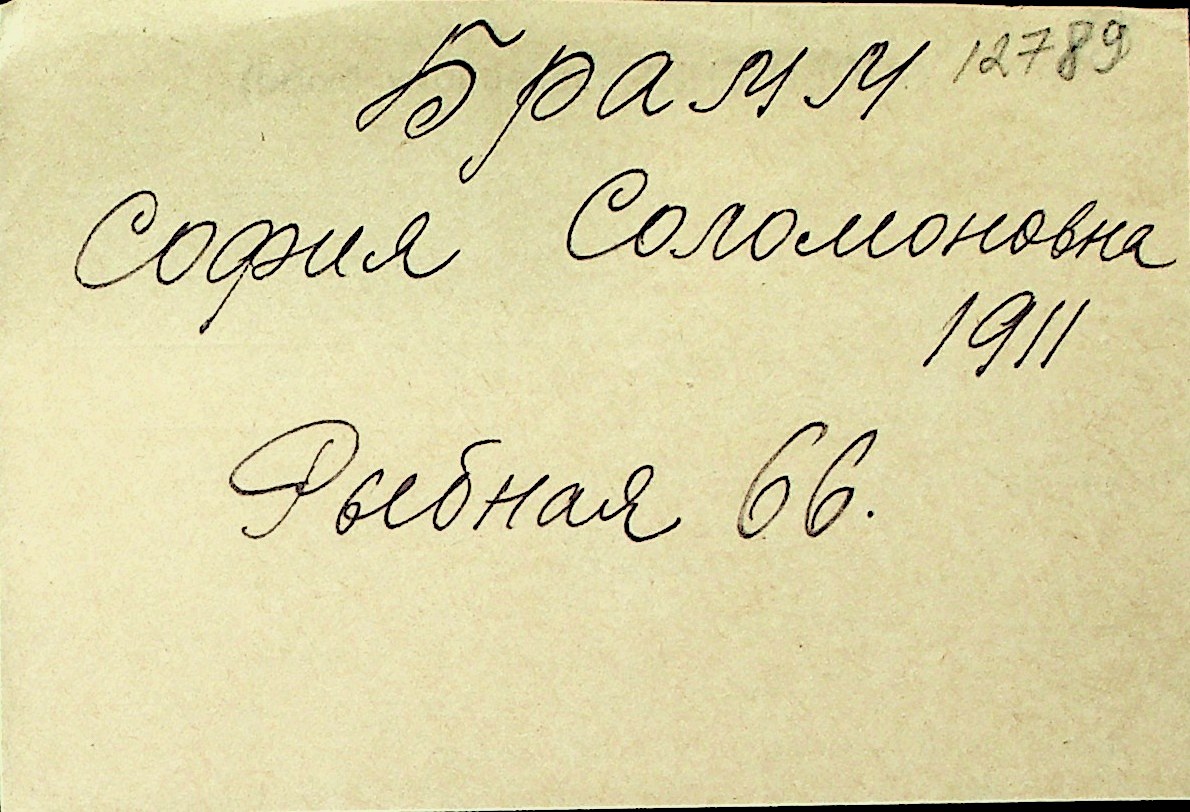 Брамм 12789
София Соломоновна
1911
Рыбная 66.